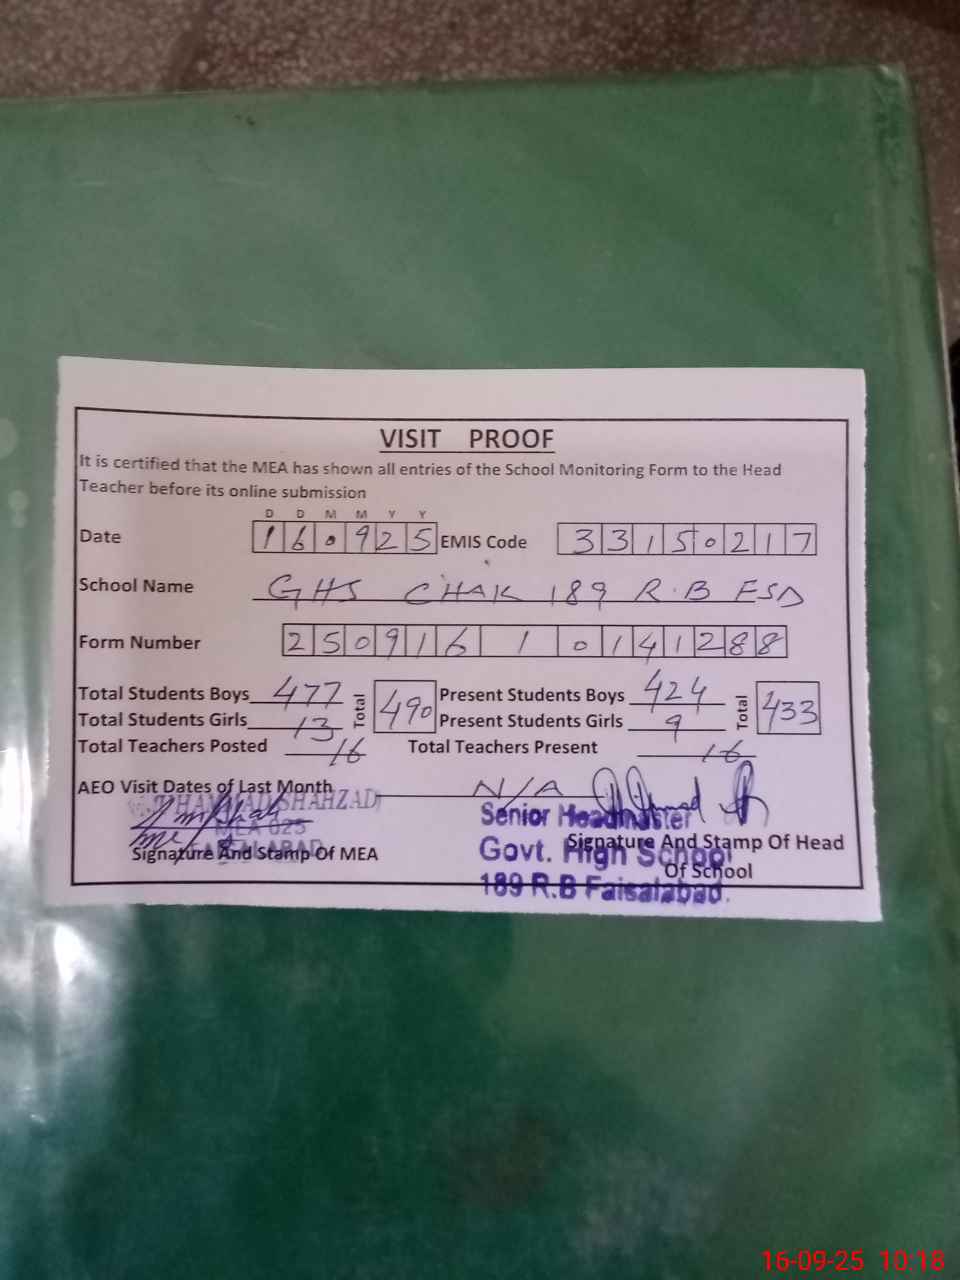 VISIT PROOF
It is certified that the MEA has shown all entries of the School Monitoring Form to the Head
Teacher before its online submission
D D M M Y Y
Date 160925 EMIS Code 33150217
School Name GHS CHAK 189 R.B FSD
Form Number 250916 1 0141288
Total Students Boys 477 Total 490 Present Students Boys 424 Total 433
Total Students Girls 13 Present Students Girls 9
Total Teachers Posted 16 Total Teachers Present 16
AEO Visit Dates of Last Month N/A
SHAHZAD
MEA 025
Signature And Stamp Of MEA
Senior Headmaster
Govt. High School
189 R.B Faisalabad.
Signature And Stamp Of Head
Of School
16-09-25 10:18